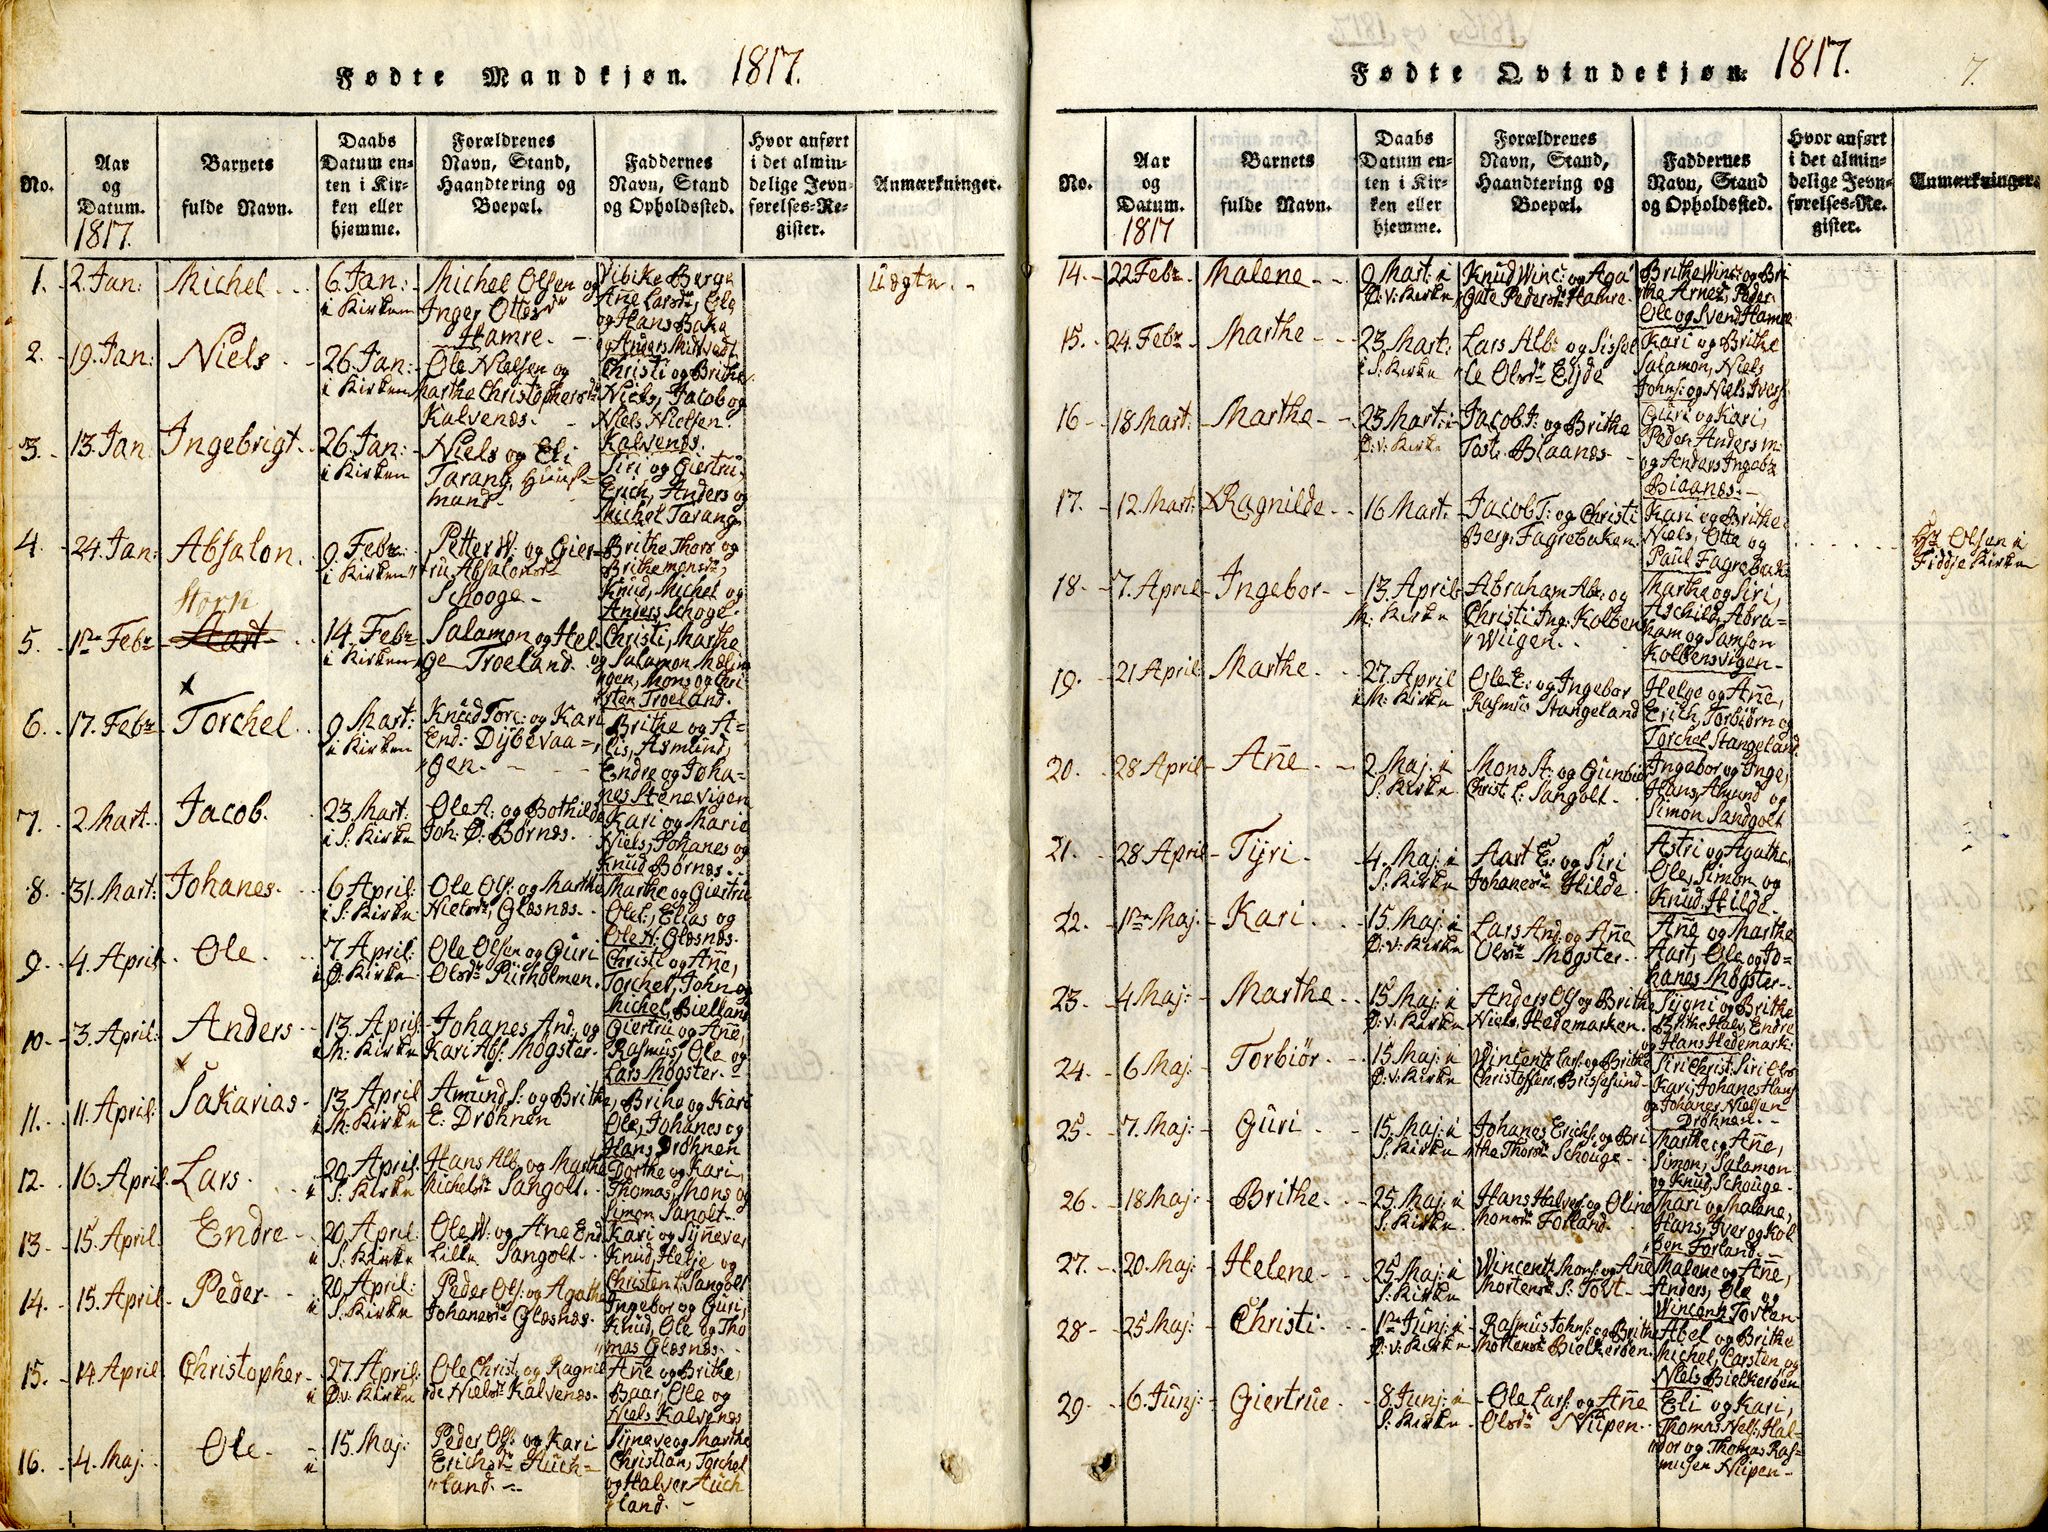 Fødte Mandkjøn. 1817.
No.
Aar og Datum.
1817.
Barnets fulde Navn.
Daabs Datum enten i Kirken eller hjemme.
Forældrenes Navn, Stand, Haandtering og Boepæl.
Faddernes Navn, Stand og Opholdssted.
Hvor anført i det almindelige Jevnførelses-Register.
Anmærkninger.
1. 2. Jan: Michel 6. Jan:
i Kirken
Michel Olsen og
Inger Ottesdr
Hamre.
Vibike Berge
Ane Larsdr, Ole
og Hans Bake
og Anders
Uægte
2. 19. Jan: Niels 26 Jan:
i Kirken
Ole Nielsen og
Marthe Christophersdr
Kalvenæs.
Christi og Brithe
Niels, Jacob og
Niels Nielsen
Kalvenæs.
3. 13. Jan: Ingebrigt 26 Jan:
i Kirken
Niels og Eli
Tarang, Huus-
mand.
Siri og Giertru,
Erich, Anders og
Michel Tarang
4. 24. Jan: Absalon 9. Febr:
i Kirken
Petter W: og Gier-
tru Absalonsdr
Schooge
Brithe Thors og
Brithe Monsdr,
Knud, Michel og
Anders Schoge.
5. 1ste Febr Aart
Stork
14. Febr
i Kirken
Salamon og Hel
ge Troeland.
Christi, Marthe
og Salamon Mæling
en, Mons og Chri
sten Troeland.
6. 17. Febr Torchel 9 Mart:
i Kirken
Knud Torc: og Kari
End: Dybevaa-
gen.
Brithe og A-
lis, Asmund,
Endre og Joha-
nes Stenevigen
7. 2. Mart. Jacob. 23. Mart:
i S: Kirke
Ole A: og Bothilde
Joh: Ø: Børnæs.
Kari og Marie
Niels, Johanes og
Knud Børnæs.
8. 31. Mart: Johanes. 6 April:
i S: Kirke
Ole Ols: og Marthe
Nielsdr Glæsnæs.
Marthe og Giertru
Ole L:, Elias og
Ole N: Glæsnæs.
9. 4. April. Ole. 7 April:
i Ø: Kirke
Ole Olsen og Guri
Olsdr Rirholmen.
Christi og Ane,
Torchel, John og
Michel Bielland
10. 3. April: Anders 13. April
i M: Kirke
Johanes And: og
Kari Abs: Møgster.
Giertru og Ane,
Rasmus, Ole og
Lars Møgster.
11. 11. April: Sakarias 13. April
i M: Kirke
Amund S: og Brithe
E: Drøhnen
Brithe og Kari
Ole, Johanes og
Hans Drøhnen
12. 16. April. Lars. 20. April.
i S: Kirke
Hans Alb: og Marthe
Michelsdr Sangolt.
Dorthe og Kari,
Thomas, Mons og
Simon Sanolt.
13. 15. April. Endre 20 April.
i S: Kirke
Ole W: og Ane End.
Lille Sangolt.
Kari og Synneve,
Knud, Helje og
Christen L: Sangolt
14. 15. April Peder 20 April:
i S: Kirke
Peder Ols: og Agathe
Johanesdr Glæsnæs.
Ingebor og Guri,
Knud, Ole og Tho
mas Glæsnæs.
15. 14 April Christopher 27. April:
i Ø: v: Kirke
Ole Christ: og Ragnil
de Nielsdr Kalvenæs.
Ane og Brithe,
Baar, Ole og
Niels Kalvenæs
16. 4. Maj. Ole 15. Maj:
i
Peder Ols: og Kari
Erichsdr Auch-
land.
Synneve og Marthe
Christian, Torchel
og Halver Auch
land.
Fødte Qvindekjøn. 1817.
7.
No.
Aar og Datum.
1817
Barnets fulde Navn.
Daabs Datum enten i Kirken eller hjemme.
Forældrenes Navn, Stand, Haandtering og Boepæl.
Faddernes Navn, Stand og Opholdssted.
Hvor anført i det almindelige Jevnførelses-Register.
Anmærkninger.
14. 22 Febr. Malene 9 Mart: i
Ø: v: Kirke
Knud Winc: og Aga
gate Pedersdr Hamre.
Brithe Winc: og Bri
the Arnesdr, Peder
Ole og Svend Hamre
15. 24. Febr Marthe 23 Mart:
i S: Kirke
Lars Alb: og Sisse
le Olsdr Eyde
Kari og Brithe
Salamon, Niels
Johns: og Niels Ivers:
16 18 Mart: Marthe 23 Mart: i
Ø: v: Kirke
Jacob J: og Brithe
Tost: Blaanæs.
Guri og Kari,
Peder Anders
og Anders Ingebr
Biaanæs.
17. 12. Mart: Ragnilde 16 Mart:
Jacob T: og Christi
Berg: Fagrebaken
Kari og Brithe
Niels, Otte og
Paul Fagrebak:
Hr Olsen i
Fiddje Kirke
18. 7. April Ingebor 13. April
M: Kirke
Abraham Abr: og
Christi Ing: Kolbens
Wiigen.
Marthe og Siri,
Aschild, Abra-
ham og Samson
Kolbensvigen
19. 21 April Marthe 27. April
i M: Kirke
Ole E: og Ingebor
Rasmus Stangeland
Helge og Ane,
Erich, Torbiørn og
Torchel Stangeland
20. 28 April Ane 2. Maj. i
S: Kirke
Mons A: og Gunbior
Christ: L: Sangolt.
Ingebor og Inge,
Hans, Amund og
Simon Sandgolt
21. 28 April Tyri. 4. Maj: i
S: Kirke
Aart E: og Siri
Johanesdr Hilde
Astri og Agathe,
Ole, Simon og
Knud Hilde.
22. 1ste Maj: Kari 15. Maj: i
Ø: v: Kirke
Lars And: og Ane
Olsdr Møgster.
Ane og Marthe
Aart, Ole og Jo-
hanes Møgster.
23. 4 Maj: Marthe 15 Maj: i
Ø: v: Kirke
Anders Ols: og Brithe
Niels: Hedemarken.
Sygni og Brithe
Brithe Halv: Endre
og Hans Hedemark:
24. 6 Maj: Torbiør 15. Maj: i
Ø: v: Kirke
Wincentz Lars: og Brithe
Christoffers: Brissesund
Siri Christ: Siri Ols
Kari, Johanes Hans
og Johanes Nielsen
Drøhnen.
25. 7. Maj: Guri 15. Maj: i
S: Kirke
Johanes Erichs: og Bri
the Thorsdr Schouge
Marthe og Ane,
Simon, Salamon
og Knud Schouge
26. 18 Maj: Brithe 25. Maj: i
S: Kirke
Hans Halvers: og Oline
Monsdr Forland.
Mari og Malane,
Hans, Iver og Kol
ben Forland.
27. 20. Maj: Helene 25 Maj: i
S: Kirke
Wincentz Mons: og Ane
Mortensdr S: Tovt
Malene og Ane,
Anders, Ole og
Wincent Tovten
28 25 Maj: Christi 1ste Junj: i
Ø: v: Kirke
Rasmus Johns: og Brithe
Mortensdr Bielkerøen
Abel og Brithe
Michel, Carsten og
Niels Bielkerøen
29. 6. Junj: Giertrue 8. Junj: i
S: Kirke
Ole Lars: og Ane
Olsdr Niipen
Eli og Kari,
Thomas Nels: Hal-
dor og Thomas Ras-
musen Niipen